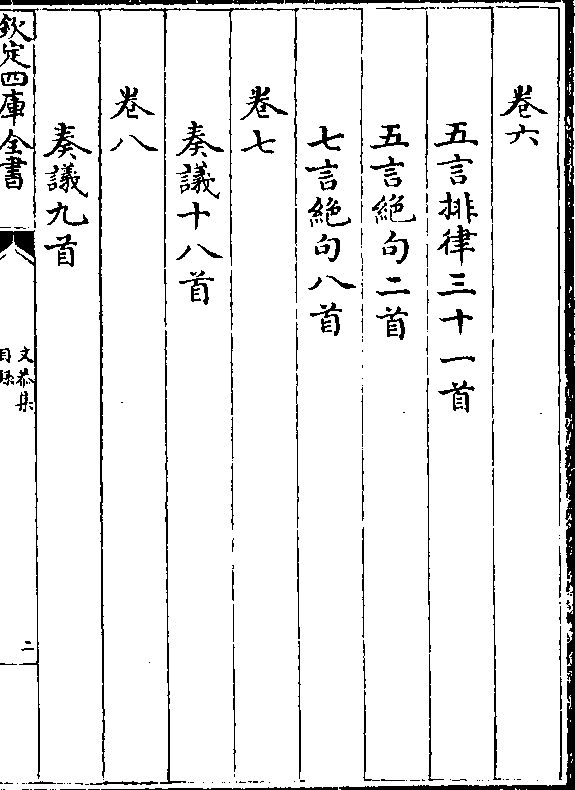 卷六
五言排律三十一首
五言絶句二首
七言絶句八首
卷七
奏議十八首
卷八
奏議九首
欽定四庫全書
文恭集
目録
二